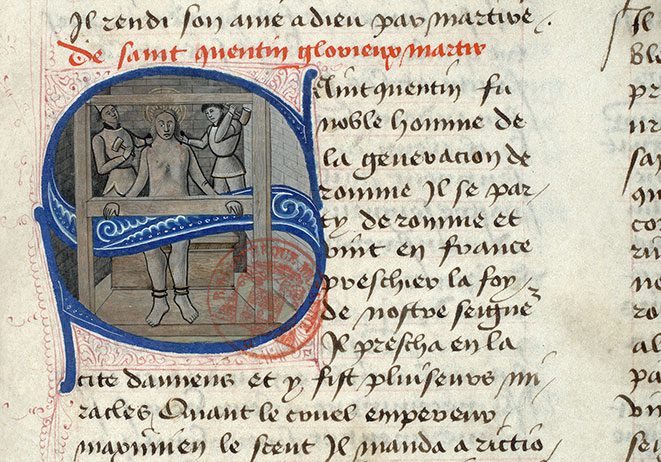 Il rendi son ame a dieu par martire.
De saint quentin glorieux martir
Saint quentin fu
noble homme de
la generacion de
romme Il se par
ty de romme et
vint en france
preschier la foy
de nostre seigne
Il prescha en la
cite damiens et y fist pluiseurs mi
racles Quant le cruel empereur
maximien le sceut Il manda a rictio